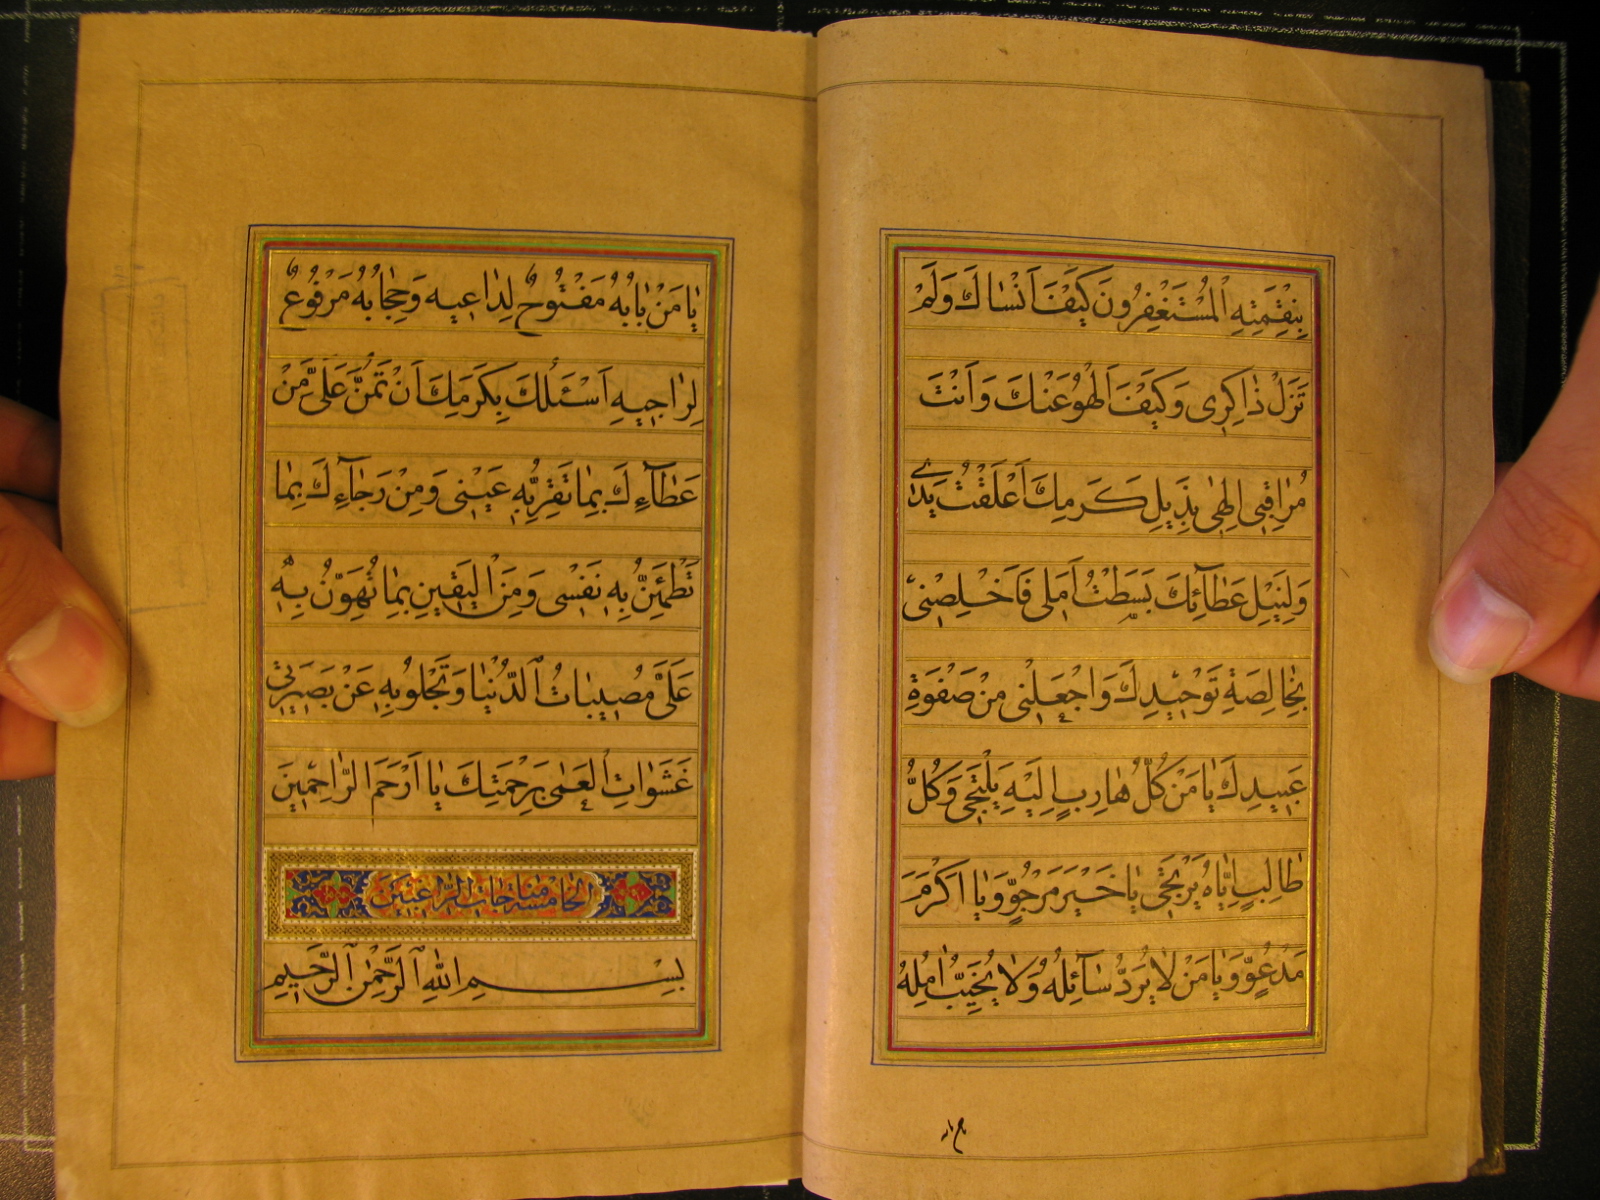 بِنِقْمَتِهِ الْمُسْتَغْفِرُونَ كَيْفَ اَنْسٰاكَ وَلَمْ
تَزَلْ ذٰاكِرِى وَكَيْفَ اَلْهُو عَنْكَ وَاَنْتَ
مُرٰاقِبِى اِلٰهِى بِذَيْلِ كَرَمِكَ اَعْلَقْتُ يَدٰى
وَلِنَيْلِ عَطٰآئِكَ بَسَطْتُ اَمَلِى فَاَخْلِصْنِى
بِخٰالِصَةِ تَوْحِيدِكَ وَاجْعَلْنِى مِنْ صَفْوَةِ
عَبِيدِكَ يٰا مَنْ كُلُّ هٰارِبٍ اِلَيْهِ يَلْتَجِى وَكُلُّ
طٰالِبٍ اِيّٰاهُ يَرْتَجِى يٰا خَيْرَ مَرْجُوٍّ وَيٰا اَكْرَمَ
مَدْعُوٍّ وَيٰا مَنْ لٰا يُرَدُّ سٰآئِلُهُ وَلٰا يُخَيَّبُ اٰمِلُهُ
يٰا مَنْ بٰابُهُ مَفْتُوحٌ لِدٰاعِيهِ وَحِجٰابُهُ مَرْفُوعٌ
لِرٰاجِيهِ اَسْئَلُكَ بِكَرَمِكَ اَنْ تَمُنَّ عَلَىَّ مِنْ
عَطٰآءِكَ بِمٰا تَقِرُّ بِهِ عَيْنِى وَمِنْ رَجٰآءِكَ بِمٰا
تَطْمَئِنُّ بِهِ نَفْسِى وَمِنَ الْيَقِينِ بِمٰا تُهَوِّنُ بِهِ
عَلَىَّ مُصِيبٰاتُ الدُّنْيٰا وَتَجْلُو بِهِ عَنْ بَصِيرَتِى
غَشَوٰاتِ الْعَمٰى بِرَحْمَتِكَ يٰا اَرْحَمَ الرّٰاحِمِينَ
الخٰامسة مناجٰات الرّٰاغبين
بِسْمِ اللهِ الرَّحْمٰنِ الرَّحِيمِ